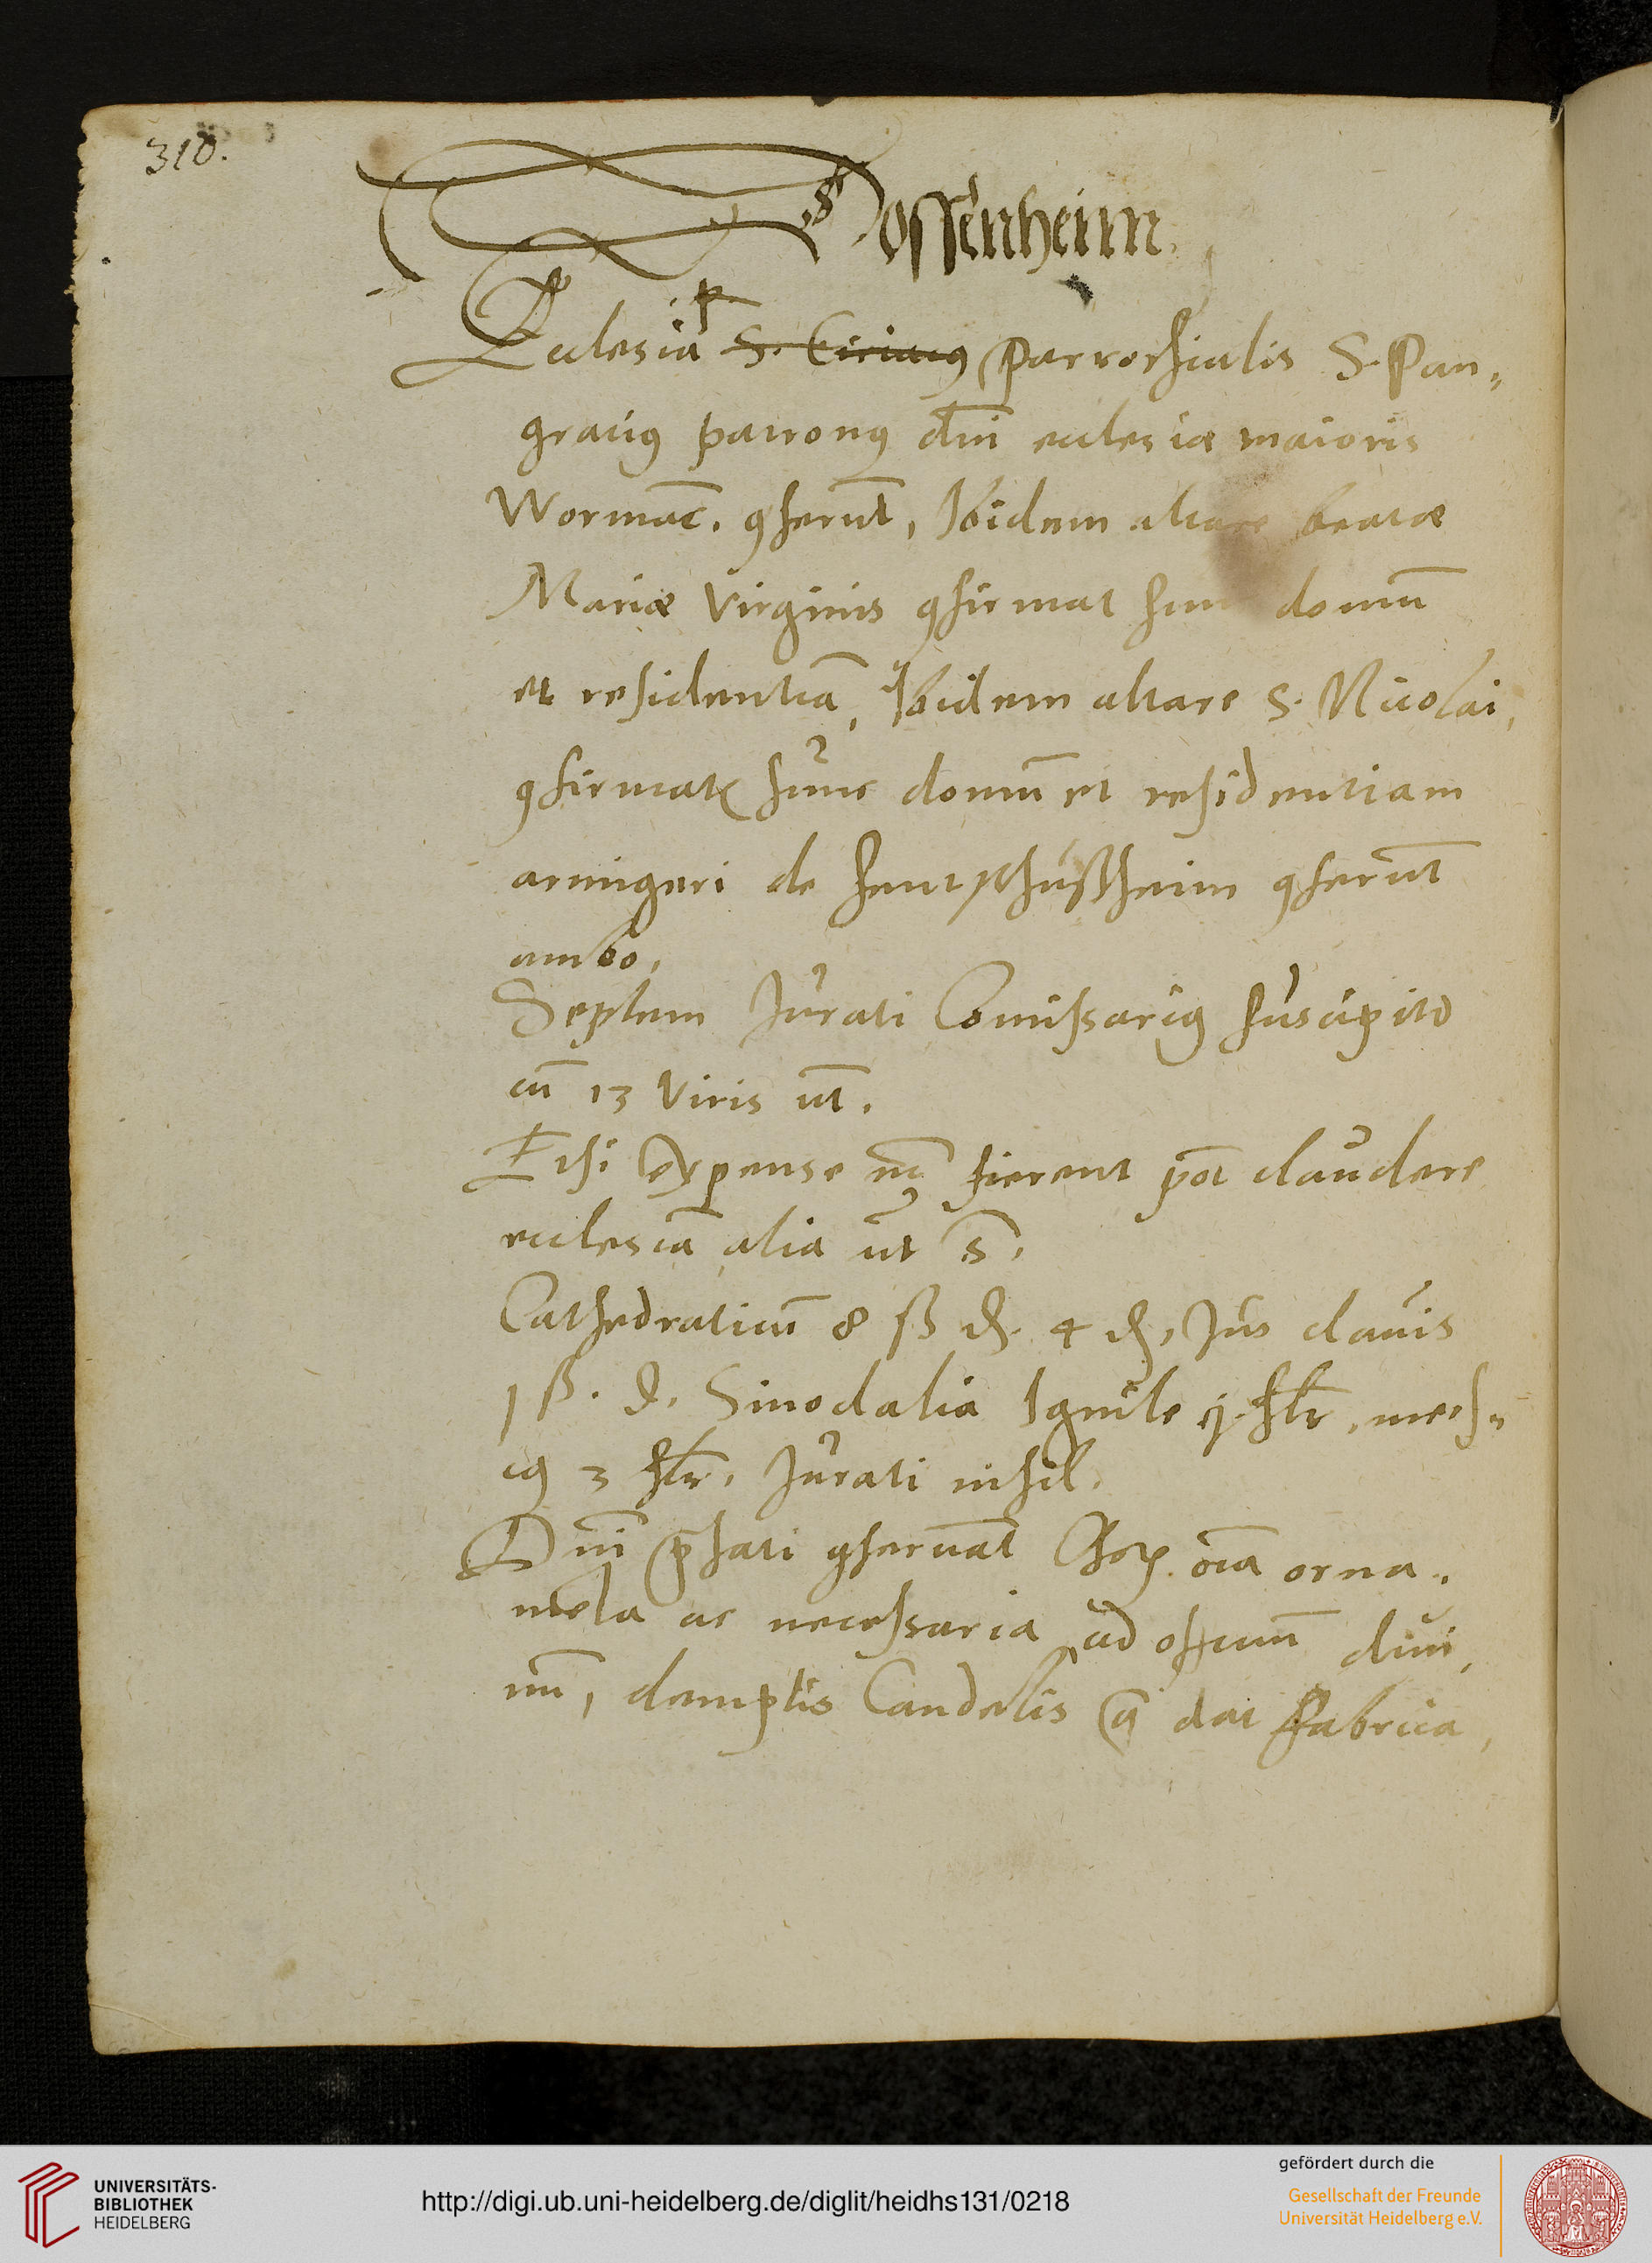 310.
Dossenheim
Ecclesia S. Ciriacus Parrochialis S. Pan„
gracius patronus dni ecclesiæ maioris
Wormac. conferunt, Ibidem altare beatæ
Mariæ Virginis confirmat hunc domũ
et residentiã, Ibidem altare S. Nicolai,
confirmat hunc domũ et residentiam
armigeri de Hentschußheim conferunt
ambo.
Septem Jurati Comissarius suscipit
cũ 13 viris ut.
Etsi expense nõ fierent pot claudere
ecclesiã alia ut s.
Cathedraticũ 8 ß d. 4 d, Jus clavis
1 ß. d. Sinodalia Ignile hlr, mesn„
3 hlr. Jurati nihil.
Dni p̃fati conservãt Chor. oĩa orna„
mẽta ac necessaria ad officium divi„
nũ, demptis Candelis q̃ dat Fabrica,
UNIVERSITÄTS-
BIBLIOTHEK
HEIDELBERG
http://digi.ub.uni-heidelberg.de/diglit/heidhs131/0218
gefördert durch die
Gesellschaft der Freunde
Universität Heidelberg e.V.